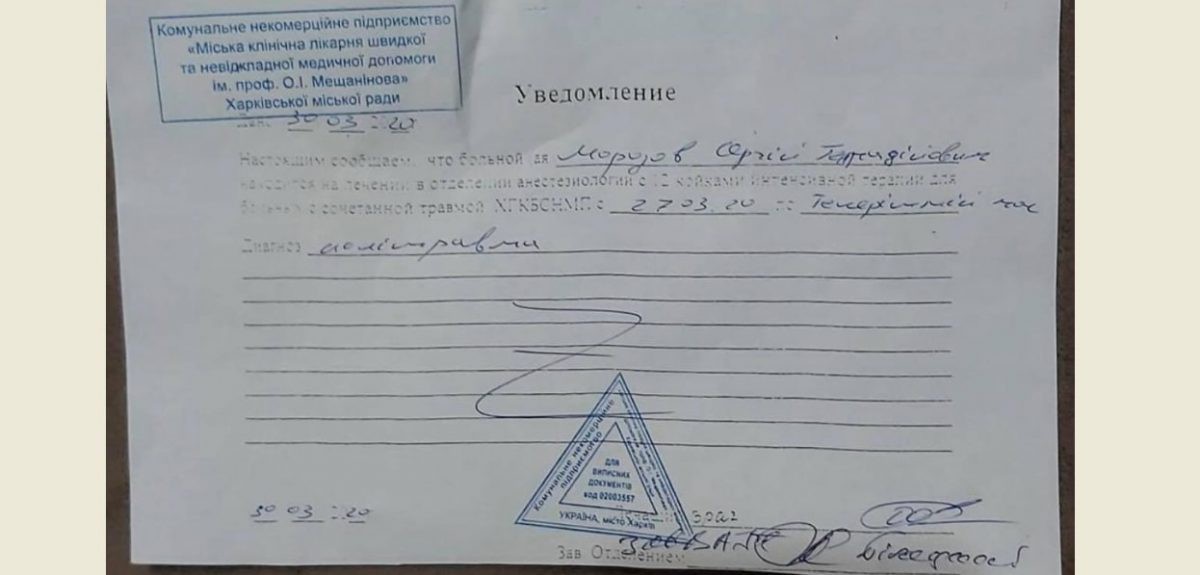 Комунальне некомерційне підприємство
«Міська клінічна лікарня швидкої
та невідкладної медичної допомоги
ім. проф. О.І. Мещанінова»
Харківської міської ради
Уведомление
30 03 20
Настоящим сообщаем, что больной ая Морозов Сергій
находится на лечении в отделении анестезиологии с 12 койками интенсивной терапии для
больных с сочетанной травмой ХГКБСНМП с 27 03. 20 по Теперішній час
Диагноз політравма
Комунальне некомерційне
підприємство
ДЛЯ
ВИПИСНИХ
ДОКУМЕНТІВ
код 02003557
УКРАЇНА, місто Харків
30 03 20
врач
Зав Отделением